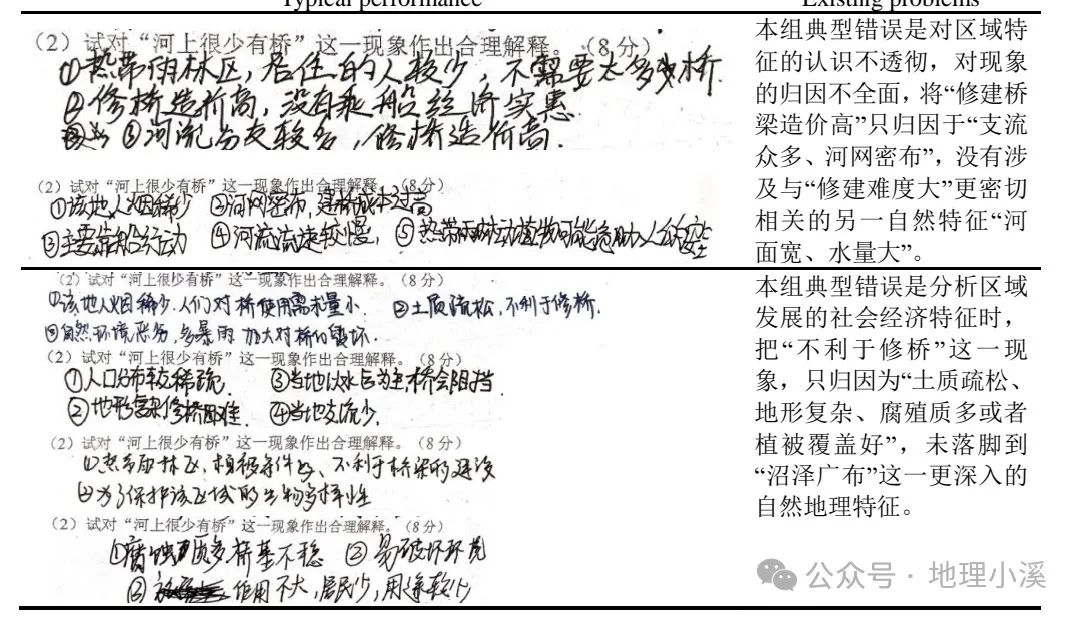 Typical performance
Existing problems
(2)试对“河上很少有桥”这一现象作出合理解释。(8分)
①热带雨林区，居住的人较少，不需要太多桥.
②修桥造价高，没有乘船经济实惠
③河流分支较多，修桥造价高.
(2)试对“河上很少有桥”这一现象作出合理解释。(8分)
①该地人烟稀少 ②河网密布，建桥成本过高
③主要靠船运动 ④河流流速较慢，⑤热带雨林动植物可能危及人的安全
本组典型错误是对区域特
征的认识不透彻，对现象
的归因不全面，将“修建桥
梁造价高”只归因于“支流
众多、河网密布”，没有涉
及与“修建难度大”更密切
相关的另一自然特征“河
面宽、水量大”。
(2)试对“河上很少有桥”这一现象作出合理解释。(8分)
①该地人烟稀少.人们对桥使用需求量小. ②土质疏松,不利于修桥.
③自然环境恶劣,多暴雨 加大对桥的毁坏.
(2)试对“河上很少有桥”这一现象作出合理解释。(8分)
①人口分布较稀疏. ③当地以水运为主,桥会阻挡
②地形复杂修桥困难. ④当地支流少.
(2)试对“河上很少有桥”这一现象作出合理解释。(8分)
①热带雨林区,植被条件好、不利于桥梁的建设
②为了保护该区域的生物多样性
(2)试对“河上很少有桥”这一现象作出合理解释。(8分)
①腐蚀质多桥基不稳 ②易破坏环境
③作用不大,居民少,用途较少
本组典型错误是分析区域
发展的社会经济特征时，
把“不利于修桥”这一现
象，只归因为“土质疏松、
地形复杂、腐殖质多或者
植被覆盖好”，未落脚到
“沼泽广布”这一更深入的
自然地理特征。
公众号·地理小溪